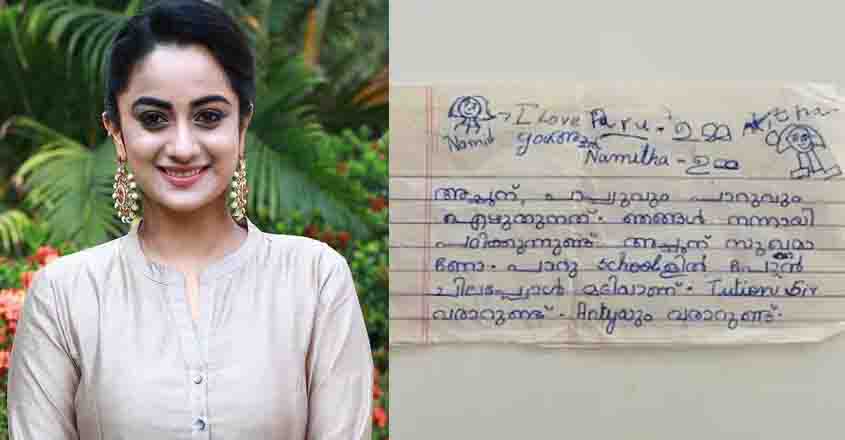 Namit → I Love Paru - ഉമ്മ
Namitha - ഉമ്മ
അച്ഛന്, പാപ്പുവും പാറുവും
എഴുതുന്നത്. ഞങ്ങൾ നന്നായി
പഠിക്കുന്നുണ്ട് അച്ഛന് സുഖമാ
ണോ. പാറു schoolളിൽ പോകാൻ
ചിലപ്പോൾ മടിയാണ്. Tution sir
വരാറുണ്ട്. Antyയും വരാറുണ്ട്.